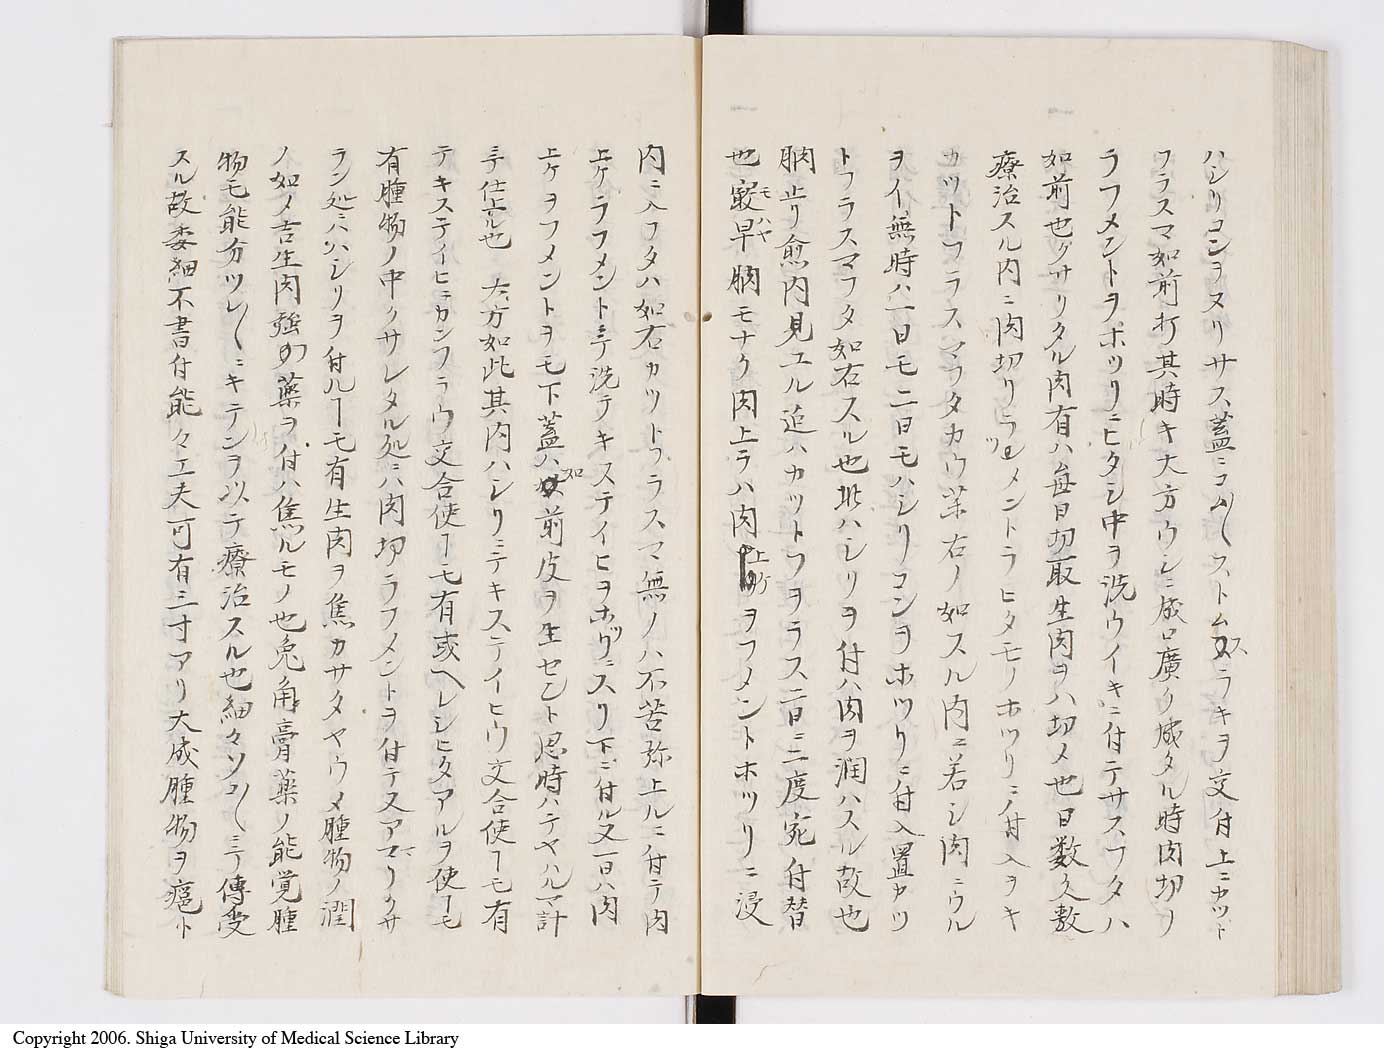 ハシリコンヲヌリサス蓋ニコム〳〵ストムスラキヲ交付上ニカツト
フラスマ如前打其時キ大方ウシニ成口廣ク成タル時肉切ノ
ラフメントヲホツリニヒタシ中ヲ洗ウイキニ付テサスフタハ
如前也クサリタル肉有ハ毎日切取生肉ヲハ切メ也日数久敷
療治スル内ニ肉切リラツメントラヒタモノホツリニ付入ヲキ
カツトフラスマフタカウ茱右ノ如スル内ニ若シ肉ニウル
ヲイ無時ハ一日モ二日モハシリコンヲホツリニ付入置カツ
トフラスマフタ如右スル也此ハシリヲ付ハ肉ヲ潤ハスル故也
膿止リ愈肉見エル迄ハカツトフヲラス二日ニ二度宛付替
也最早モハヤ膿モナク肉上ラハ肉上ケヲフメントホツリニ浸
内ニ入フタハ如右カツトフラスマ無ノハ不苦弥上ルニ付テ肉
上ケラフメントニテ洗テキステイヒヲホツクニスリ下ニ付ル又一日ハ肉
上ケヲフメントヲモ下蓋ハ如前皮ヲ生セント思時ハテヤハルマ計
ニテ仕上ル也 大方如此其内ハシリニテキステイヒウ交合使フモ有
テキステイヒニカンフラウ交合使フモ有或ヘレシヒタアルヲ使フモ
有腫物ノ中クサレタル処ニハ肉切ラフメントヲ付テ又アマリクサ
ラン処ニハハシリヲ付ルフモ有生肉ヲ焦カサタヤウメ腫物ノ潤
ノ如メ吉生肉強力薬ヲ付ハ焦ルモノ也兎角膏薬ノ能覚腫
物モ能分ツレ〳〵ニキテンヲ以テ療治スル也細々ソコ〳〵ニテ傳受
スル故委細不書付能々工夫可有三寸アリ大成腫物ヲ瘟ト